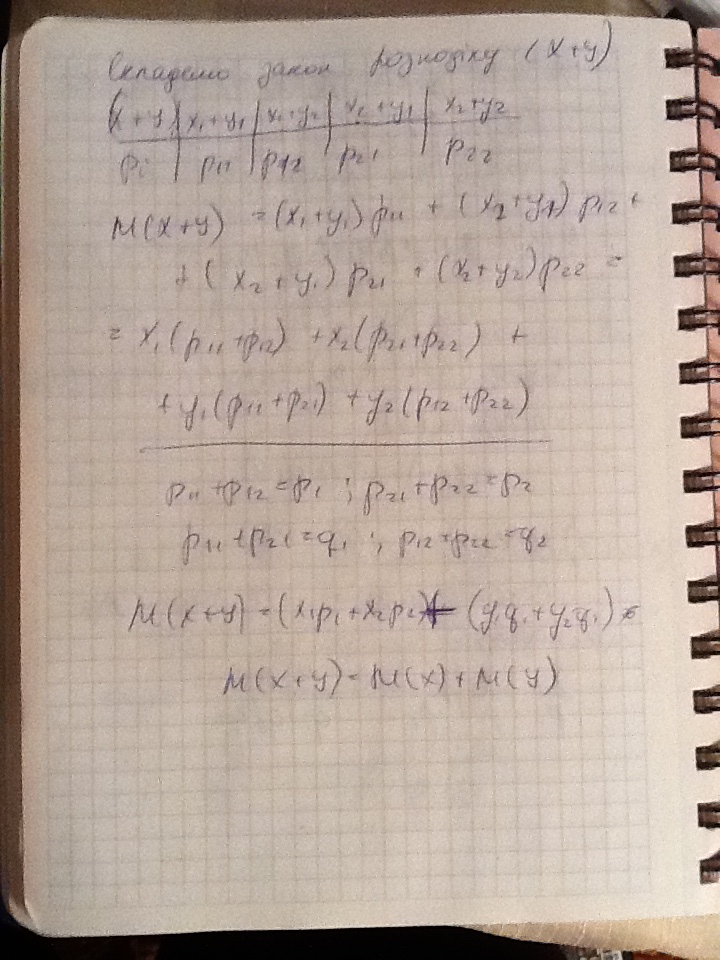 Складемо закон розподілу (x+y)
x+y | x₁+y₁ | x₁+y₂ | x₂+y₁ | x₂+y₂
pᵢ | p₁₁ | p₁₂ | p₂₁ | p₂₂
M(x+y) = (x₁+y₁)p₁₁ + (x₁+y₂)p₁₂ +
+ (x₂+y₁)p₂₁ + (x₂+y₂)p₂₂ =
= x₁(p₁₁+p₁₂) + x₂(p₂₁+p₂₂) +
+ y₁(p₁₁+p₂₁) + y₂(p₁₂+p₂₂)
p₁₁+p₁₂=p₁ ; p₂₁+p₂₂=p₂
p₁₁+p₂₁=q₁ ; p₁₂+p₂₂=q₂
M(x+y) = (x₁p₁+x₂p₂)+(y₁q₁+y₂q₁)
M(x+y) = M(x)+M(y)